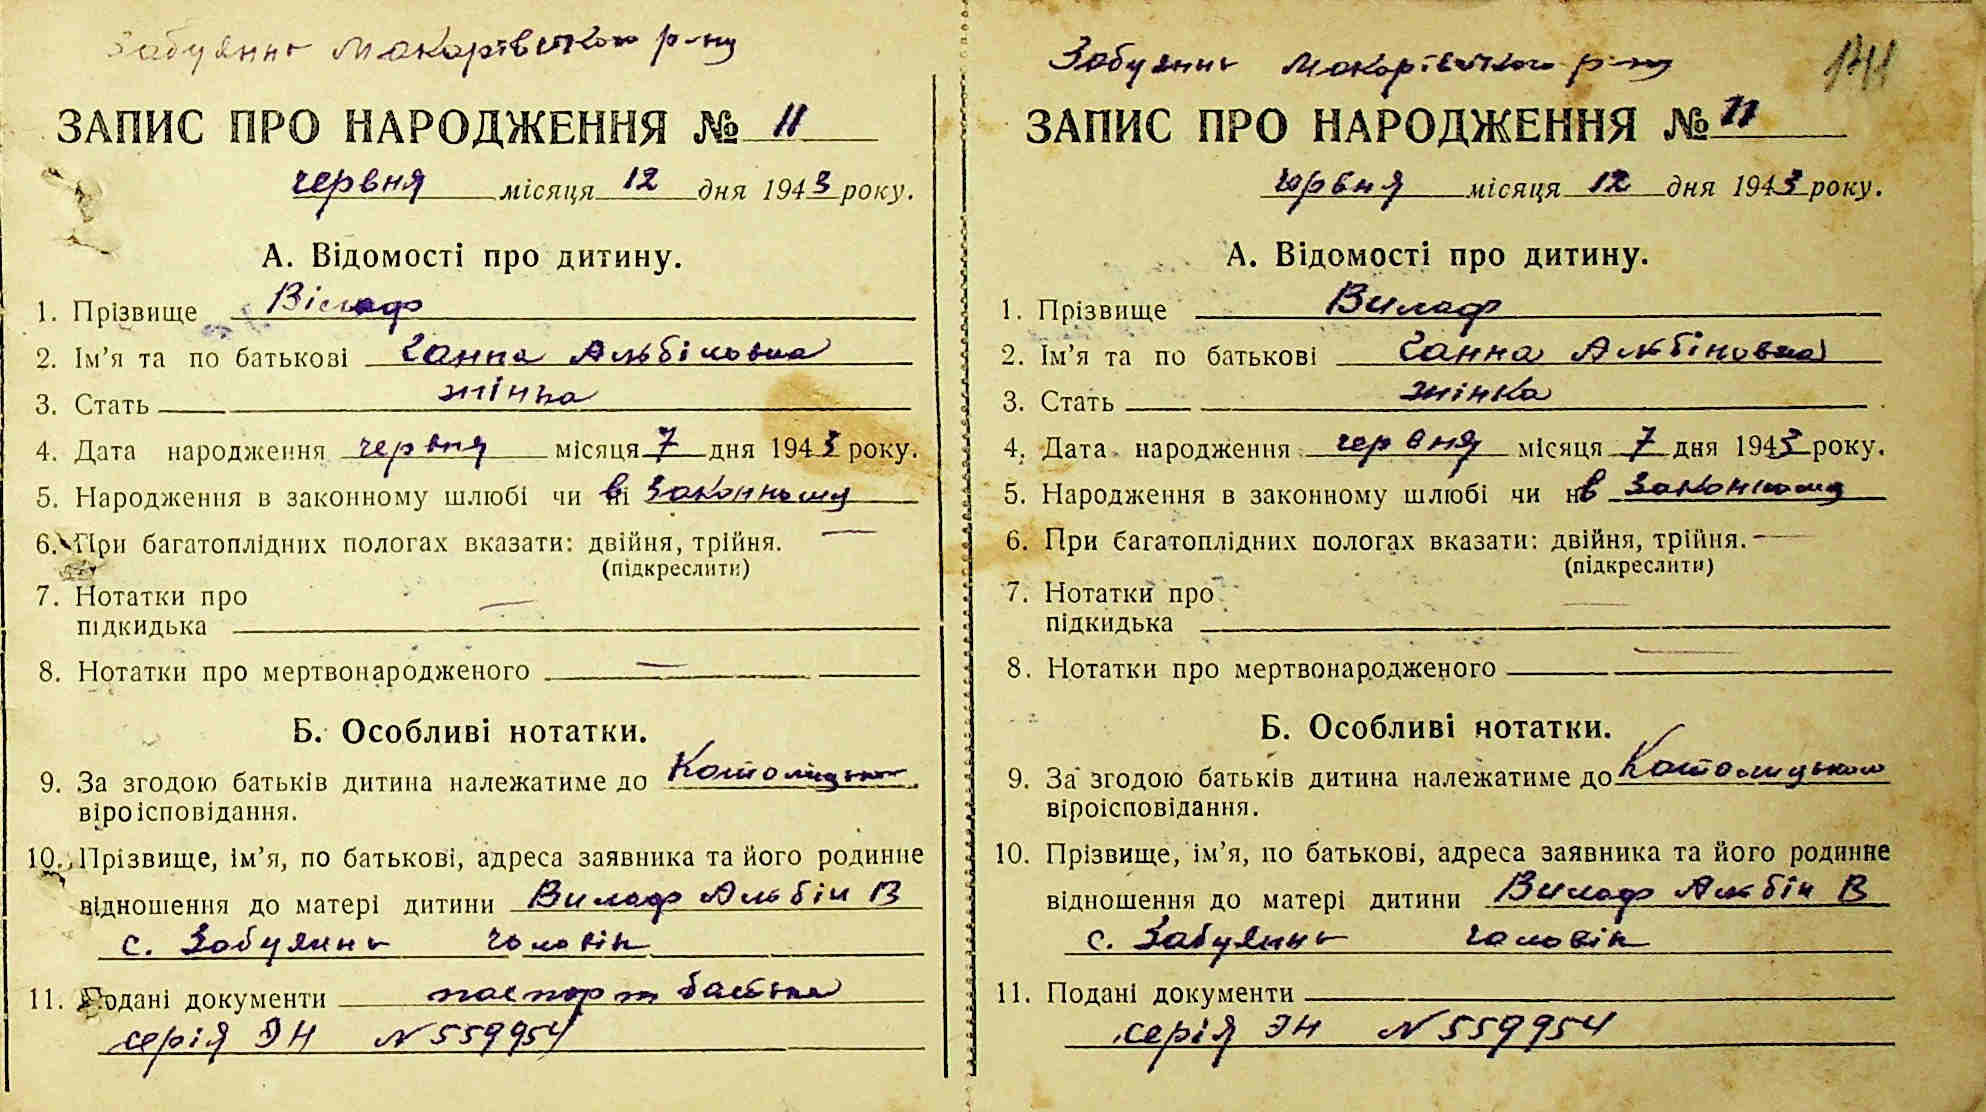 Забуяння Макарівського р-ну
ЗАПИС ПРО НАРОДЖЕННЯ № 11
червня місяця 12 дня 1943 року.
А. Відомості про дитину.
1. Прізвище
2. Ім’я та по батькові Ганна Альбіновна
3. Стать жінка
4. Дата народження червня місяця 7 дня 1943 року.
5. Народження в законному шлюбі чи ні в законному
6. При багатоплідних пологах вказати: двійня, трійня. —
(підкреслити)
7. Нотатки про —
підкидька
8. Нотатки про мертвонародженого —
Б. Особливі нотатки.
9. За згодою батьків дитина належатиме до Католицького
віроісповідання.
10. Прізвище, ім’я, по батькові, адреса заявника та його родинне
відношення до матері дитини Вилаф Альбін В
с. Забуяння чоловік
11. Подані документи паспорт батька
серія ЭН N 559954
Забуяння Макарівського р-ну
141
ЗАПИС ПРО НАРОДЖЕННЯ № 11
червня місяця 12 дня 1943 року.
А. Відомості про дитину.
1. Прізвище Вилаф
2. Ім’я та по батькові Ганна Альбіновна
3. Стать жінка
4. Дата народження червня місяця 7 дня 1943 року.
5. Народження в законному шлюбі чи в законному
6. При багатоплідних пологах вказати: двійня, трійня. —
(підкреслити)
7. Нотатки про —
підкидька
8. Нотатки про мертвонародженого —
Б. Особливі нотатки.
9. За згодою батьків дитина належатиме до Католицького
віроісповідання.
10. Прізвище, ім’я, по батькові, адреса заявника та його родинне
відношення до матері дитини Вилаф Альбін В
с. Забуяння чоловік
11. Подані документи
серія ЭН N 559954